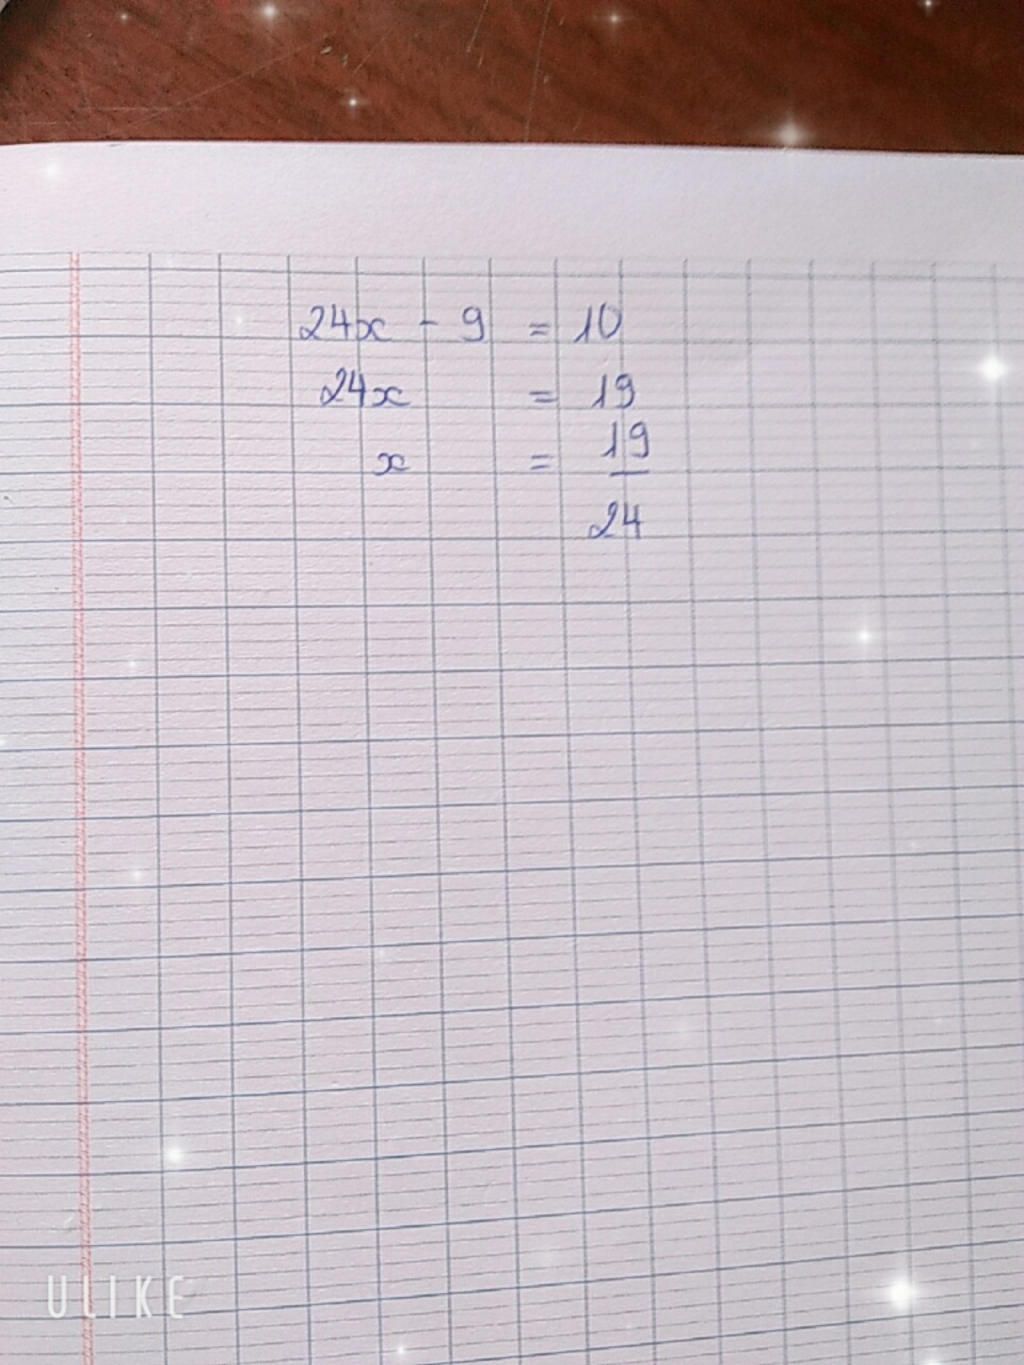 24x - 9 = 10
24x = 19
x = 19
24
ULIKE